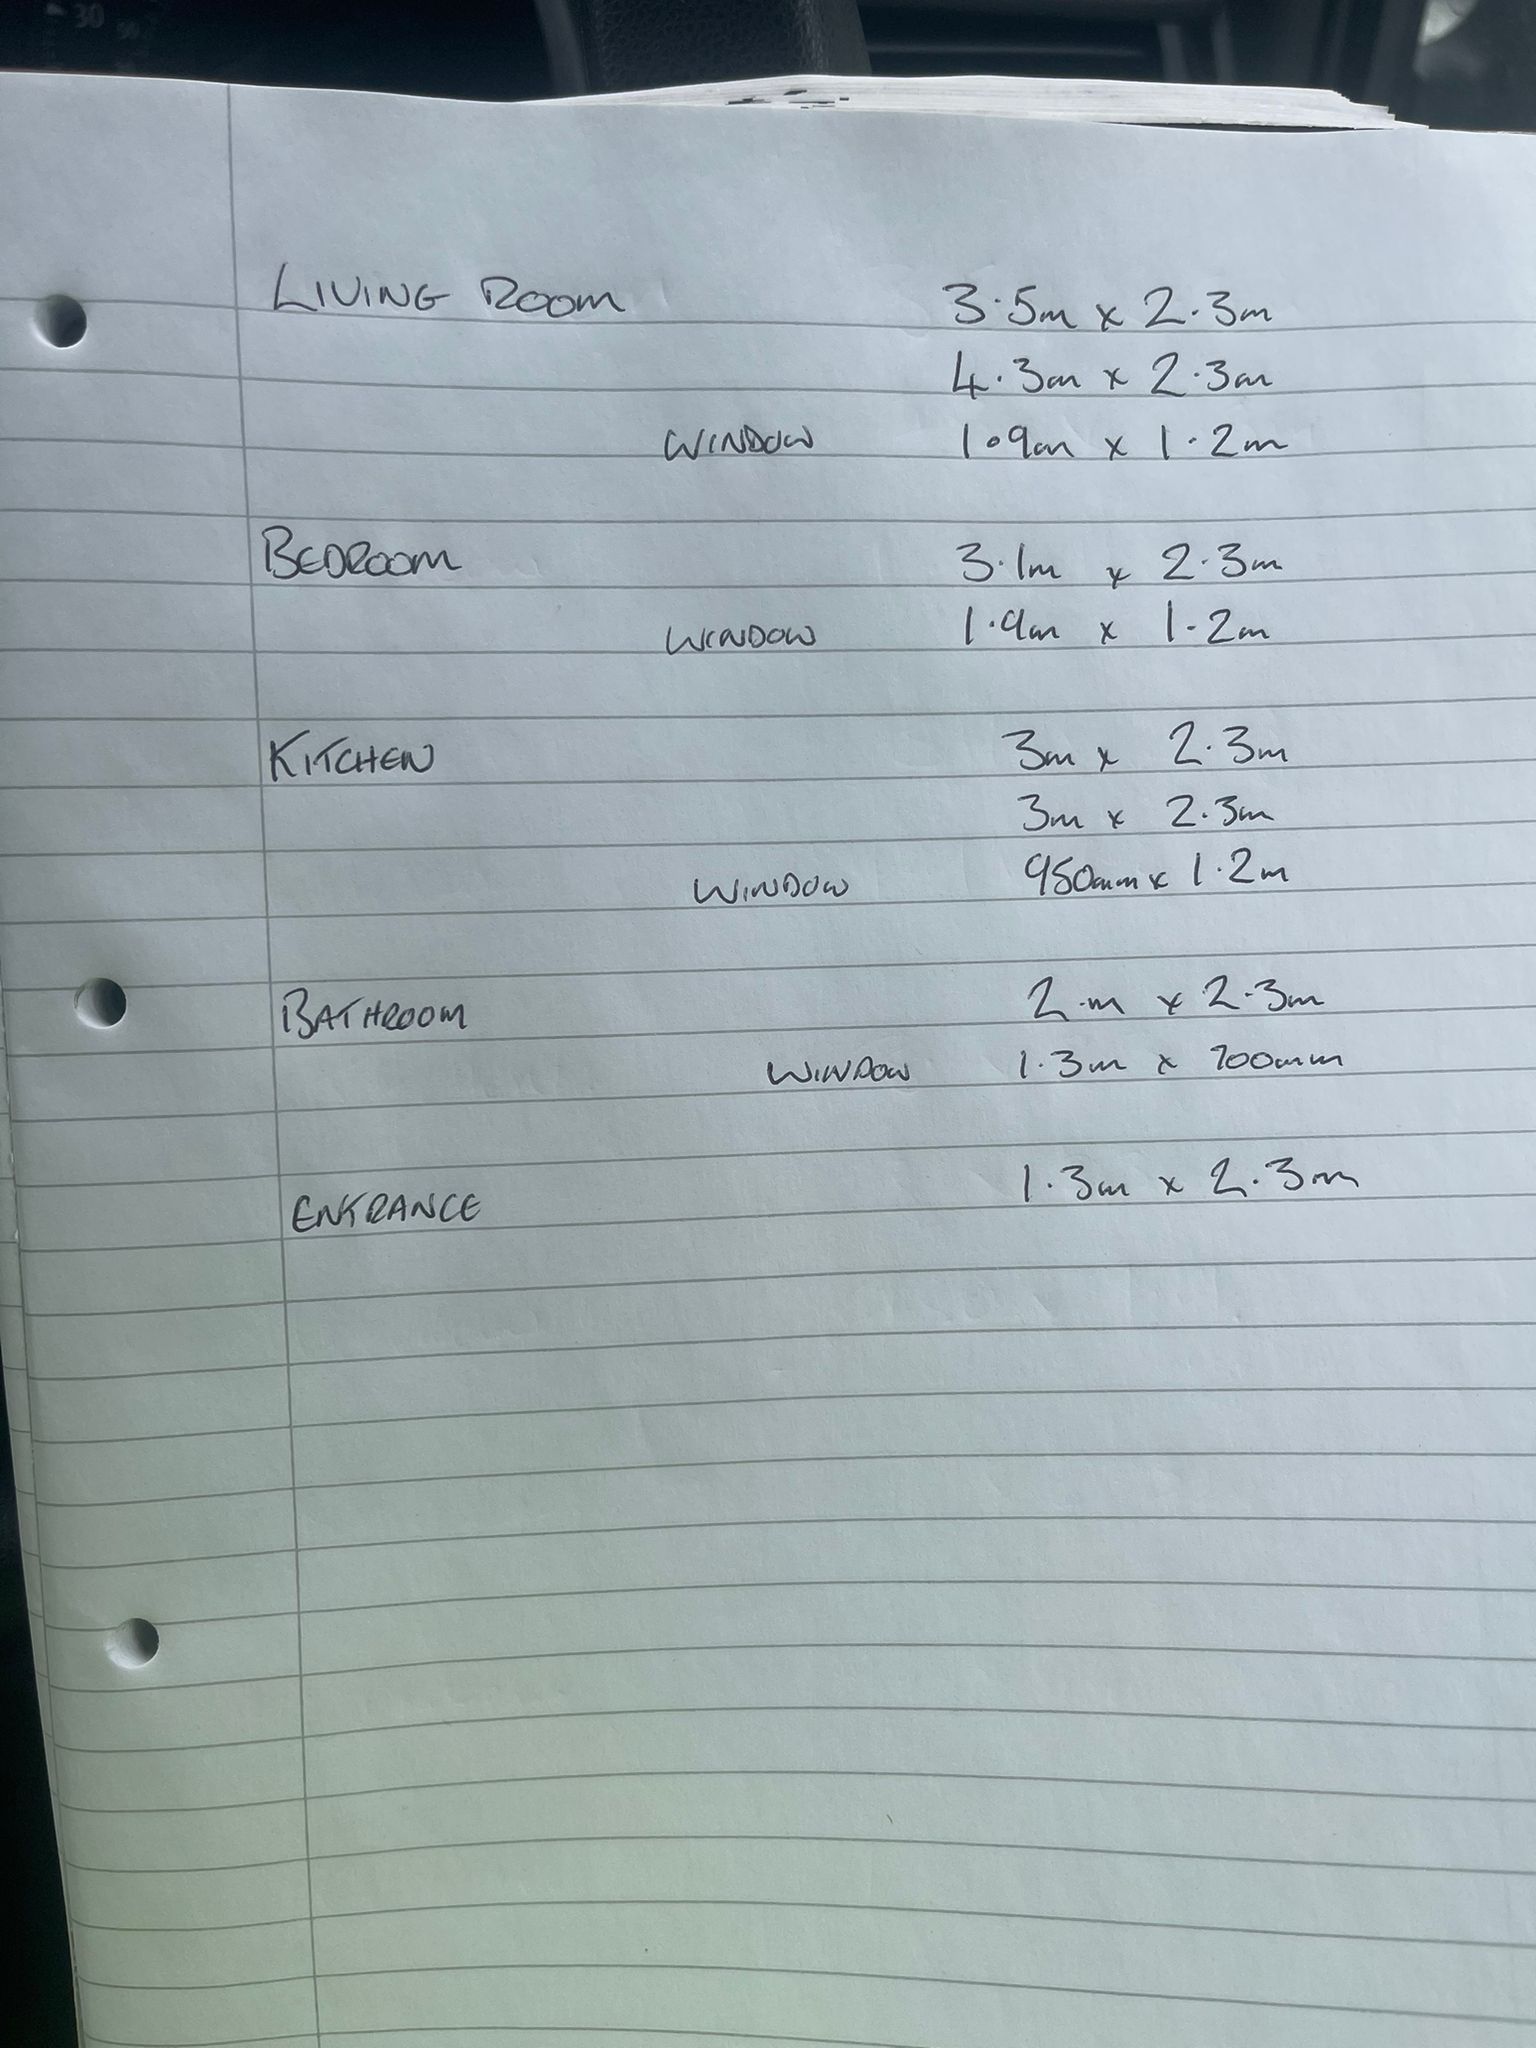 30
LIVING ROOM 3.5m x 2.3m
4.3m x 2.3m
WINDOW 1.9m x 1.2m
BEDROOM 3.1m x 2.3m
WINDOW 1.9m x 1.2m
KITCHEN 3m x 2.3m
3m x 2.3m
WINDOW 950mm x 1.2m
BATHROOM 2.m x 2.3m
WINDOW 1.3m x 700mm
ENTRANCE 1.3m x 2.3m